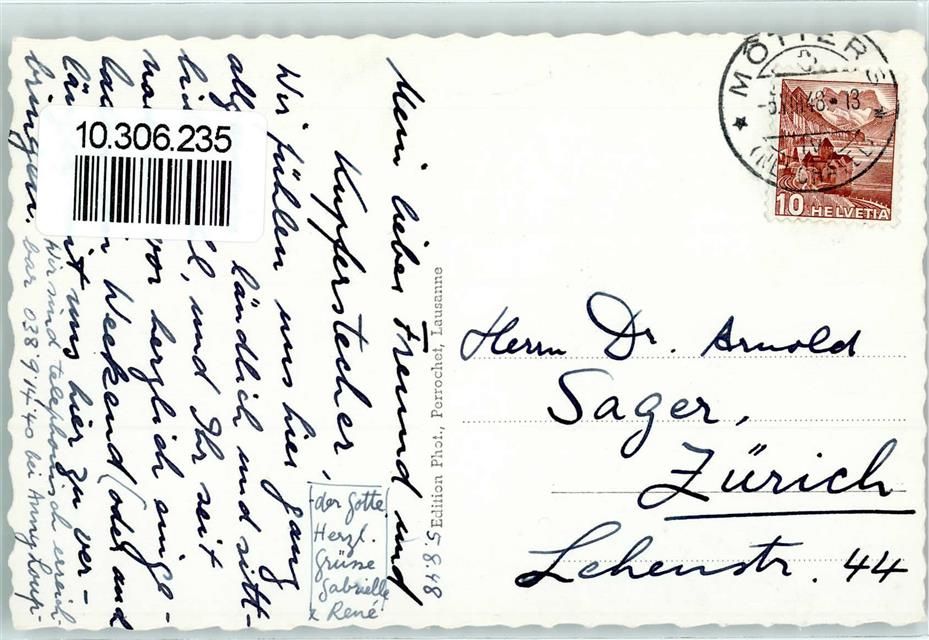 Mein lieber Freund und
Kupferstecher,
Wir fühlen uns hier ganz
ländlich und sitt-
und Ihr seit
vor herzlich einge-
Weekend (oder auch
mit uns hier zu ver-
bringen.
Wir sind telephonisch erreich-
bar 038 9 14 40 bei
der Gotte
Herzl.
Grüsse
Gabrielle
& René
5.8.48
Edition Phot., Perrochet, Lausanne
10.306.235
MÔTIERS
48.-13
(NEUCHATEL)
10 HELVETIA
Herrn Dr. Arnold
Sager,
Zürich
Lehenstr. 44